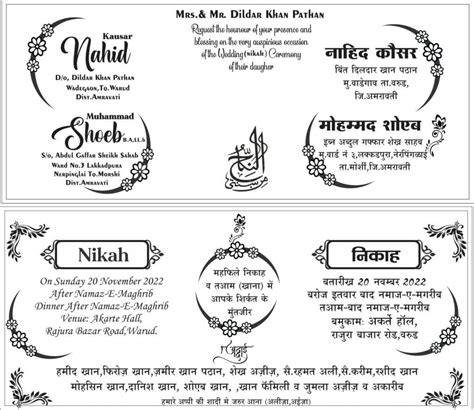 Mrs.& Mr. Dildar Khan Pathan
Request the honour of your presence and
blessing on the very auspicious occasion
of the Wedding (nikah) Ceremony
of their daughter
Kausar
Nahid
D/o, Dildar Khan Pathan
Wadegaon,To.Warud
Dist.Amravati
Muhammad
Shoeb B.A,LL.b
S/o, Abdul Gaffar Sheikh Sahab
Ward No.3 Lakkadpura
Nerpinglai To.Morshi
Dist.Amravati
नाहिद कौसर
बिंत दिलदार खान पठान
मु.वाडेगाव ता.वरुड,
जि.अमरावती
मोहम्मद शोएब
इब्न अब्दुल गफ्फार शेख साहब
मु.वार्ड नं ३,लक्कडपुरा,नेरपिंगळाई
ता.मोर्शी,जि.अमरावती
Nikah
On Sunday 20 November 2022
After Namaz-E-Maghrib
Dinner After Namaz-E-Maghrib
Venue: Akarte Hall,
Rajura Bazar Road,Warud.
महफिले निकाह
व तआम (खाना) में
आपके शिर्कत के
मुंतजीर
निकाह
बतारीख 20 नवम्बर 2022
बरोज इतवार बाद नमाज-ए-मगरीब
तआम-बाद नमाज-ए-मगरीब
बमुकाम: अकर्ते हॉल,
राजुरा बाजार रोड,वरुड.
हमीद खान,फिरोज़ खान,ज़मीर खान पठान, शेख अज़ीज़, सै.रहमत अली,सै.करीम,शहीद खान
मोहसिन खान,दानिश खान, शोएब खान, ,खान फॅमिली व जुमला अज़ीज़ व अकारीब
हमारे अप्पी की शादी में जरुर आना (अलीज़ा,अईज़ा)